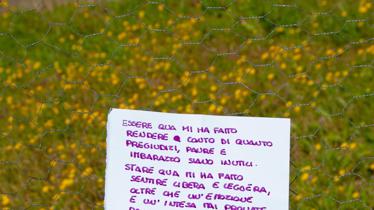 ESSERE QUA MI HA FATTO
RENDERE CONTO DI QUANTO
PREGIUDIZI, PAURE E
IMBARAZZO SIANO INUTILI.
STARE QUA MI HA FATTO
SENTIRE LIBERA E LEGGERA,
OLTRE CHE UN'EMOZIONE
E UN'INTESA MAI PROVATE